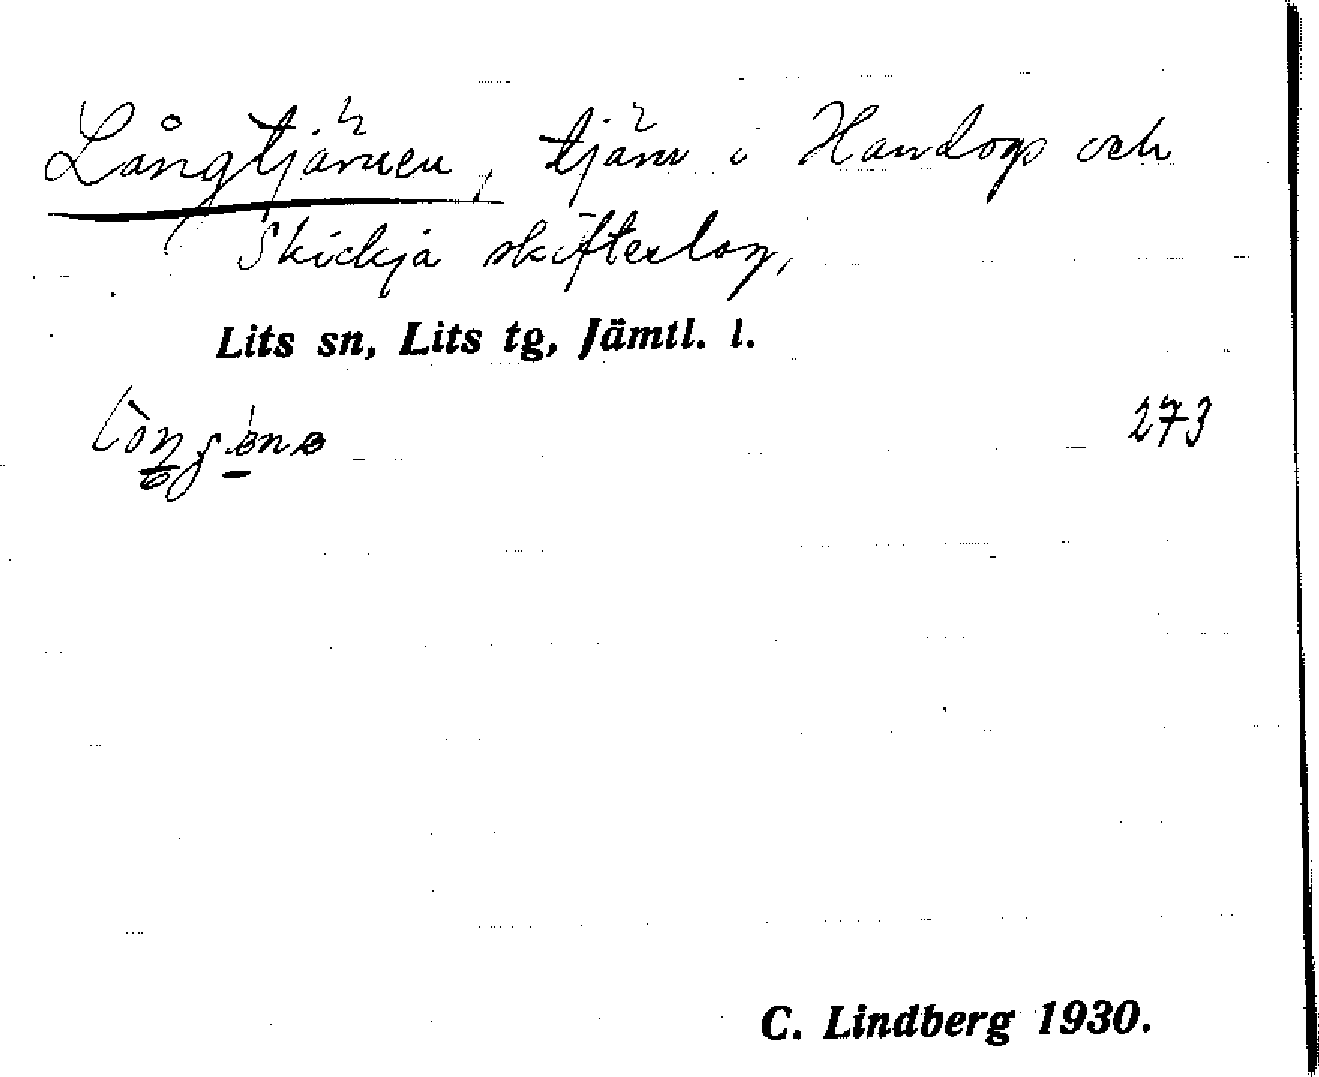 Långtjärnen, tjärn i Handogs och
Skickja skifteslag,
Lits sn, Lits tg, Jämtl. l.
273
C. Lindberg 1930.